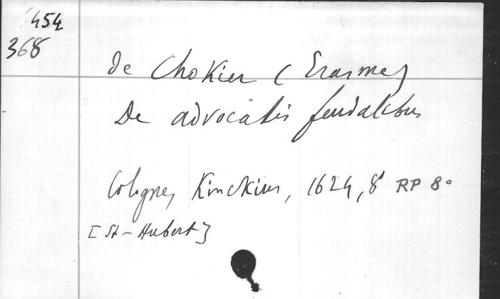 454
368
de Chokier (Erasme)
De advocatis feudalibus
Cologne, Kinckius, 1624, 8° RP 8°
[St-Hubert]